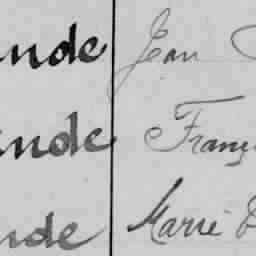 nde Jean
nde Franç
nde Marie